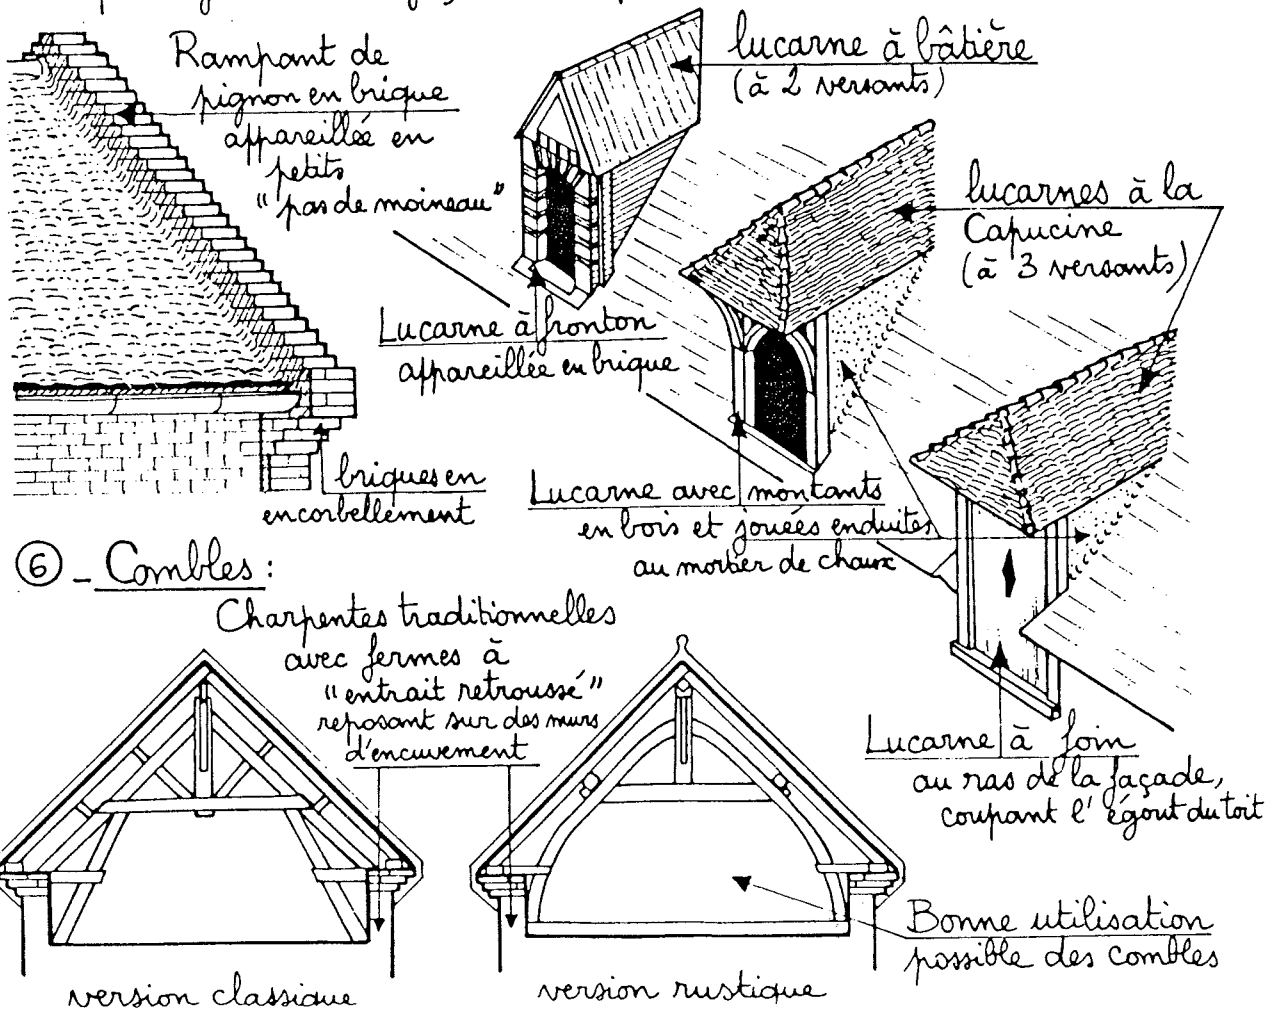 Rampant de
pignon en brique
appareillée en
petits
"pas de moineau"
lucarne à bâtière
(à 2 versants)
lucarnes à la
Capucine
(à 3 versants)
Lucarne à fronton
appareillée en brique
briques en
encorbellement
Lucarne avec montants
en bois et jouées enduites
au mortier de chaux
6 - Combles :
Charpentes traditionnelles
avec fermes à
"entrait retroussé"
reposant sur des murs
d'encuvement
Lucarne à foin
au ras de la façade,
coupant l'égout du toit
Bonne utilisation
possible des combles
version classique
version rustique